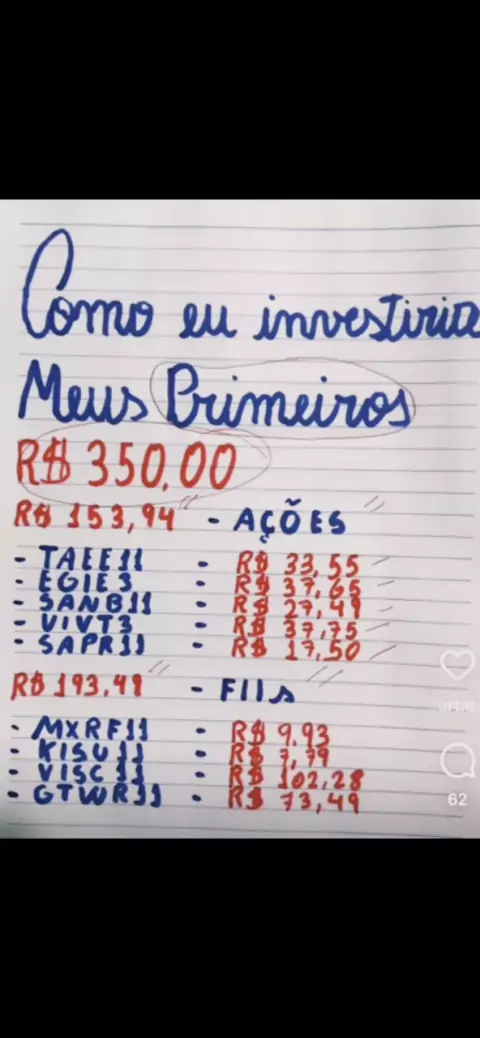 Como eu investiria
Meus Primeiros
R$ 350,00
R$ 153,94 - AÇÕES
- TAEE11 - R$ 33,55
- EGIE3 - R$ 37,65
- SANB11 - R$ 27,49
- VIVT3 - R$ 37,75
- SAPR11 - R$ 17,50
R$ 193,49 - FIIs
- MXRF11 - R$ 9.93
- KISU11 - R$ 7,79
- VISC11 - R$ 102,28
- GTWR11 - R$ 73,49
62